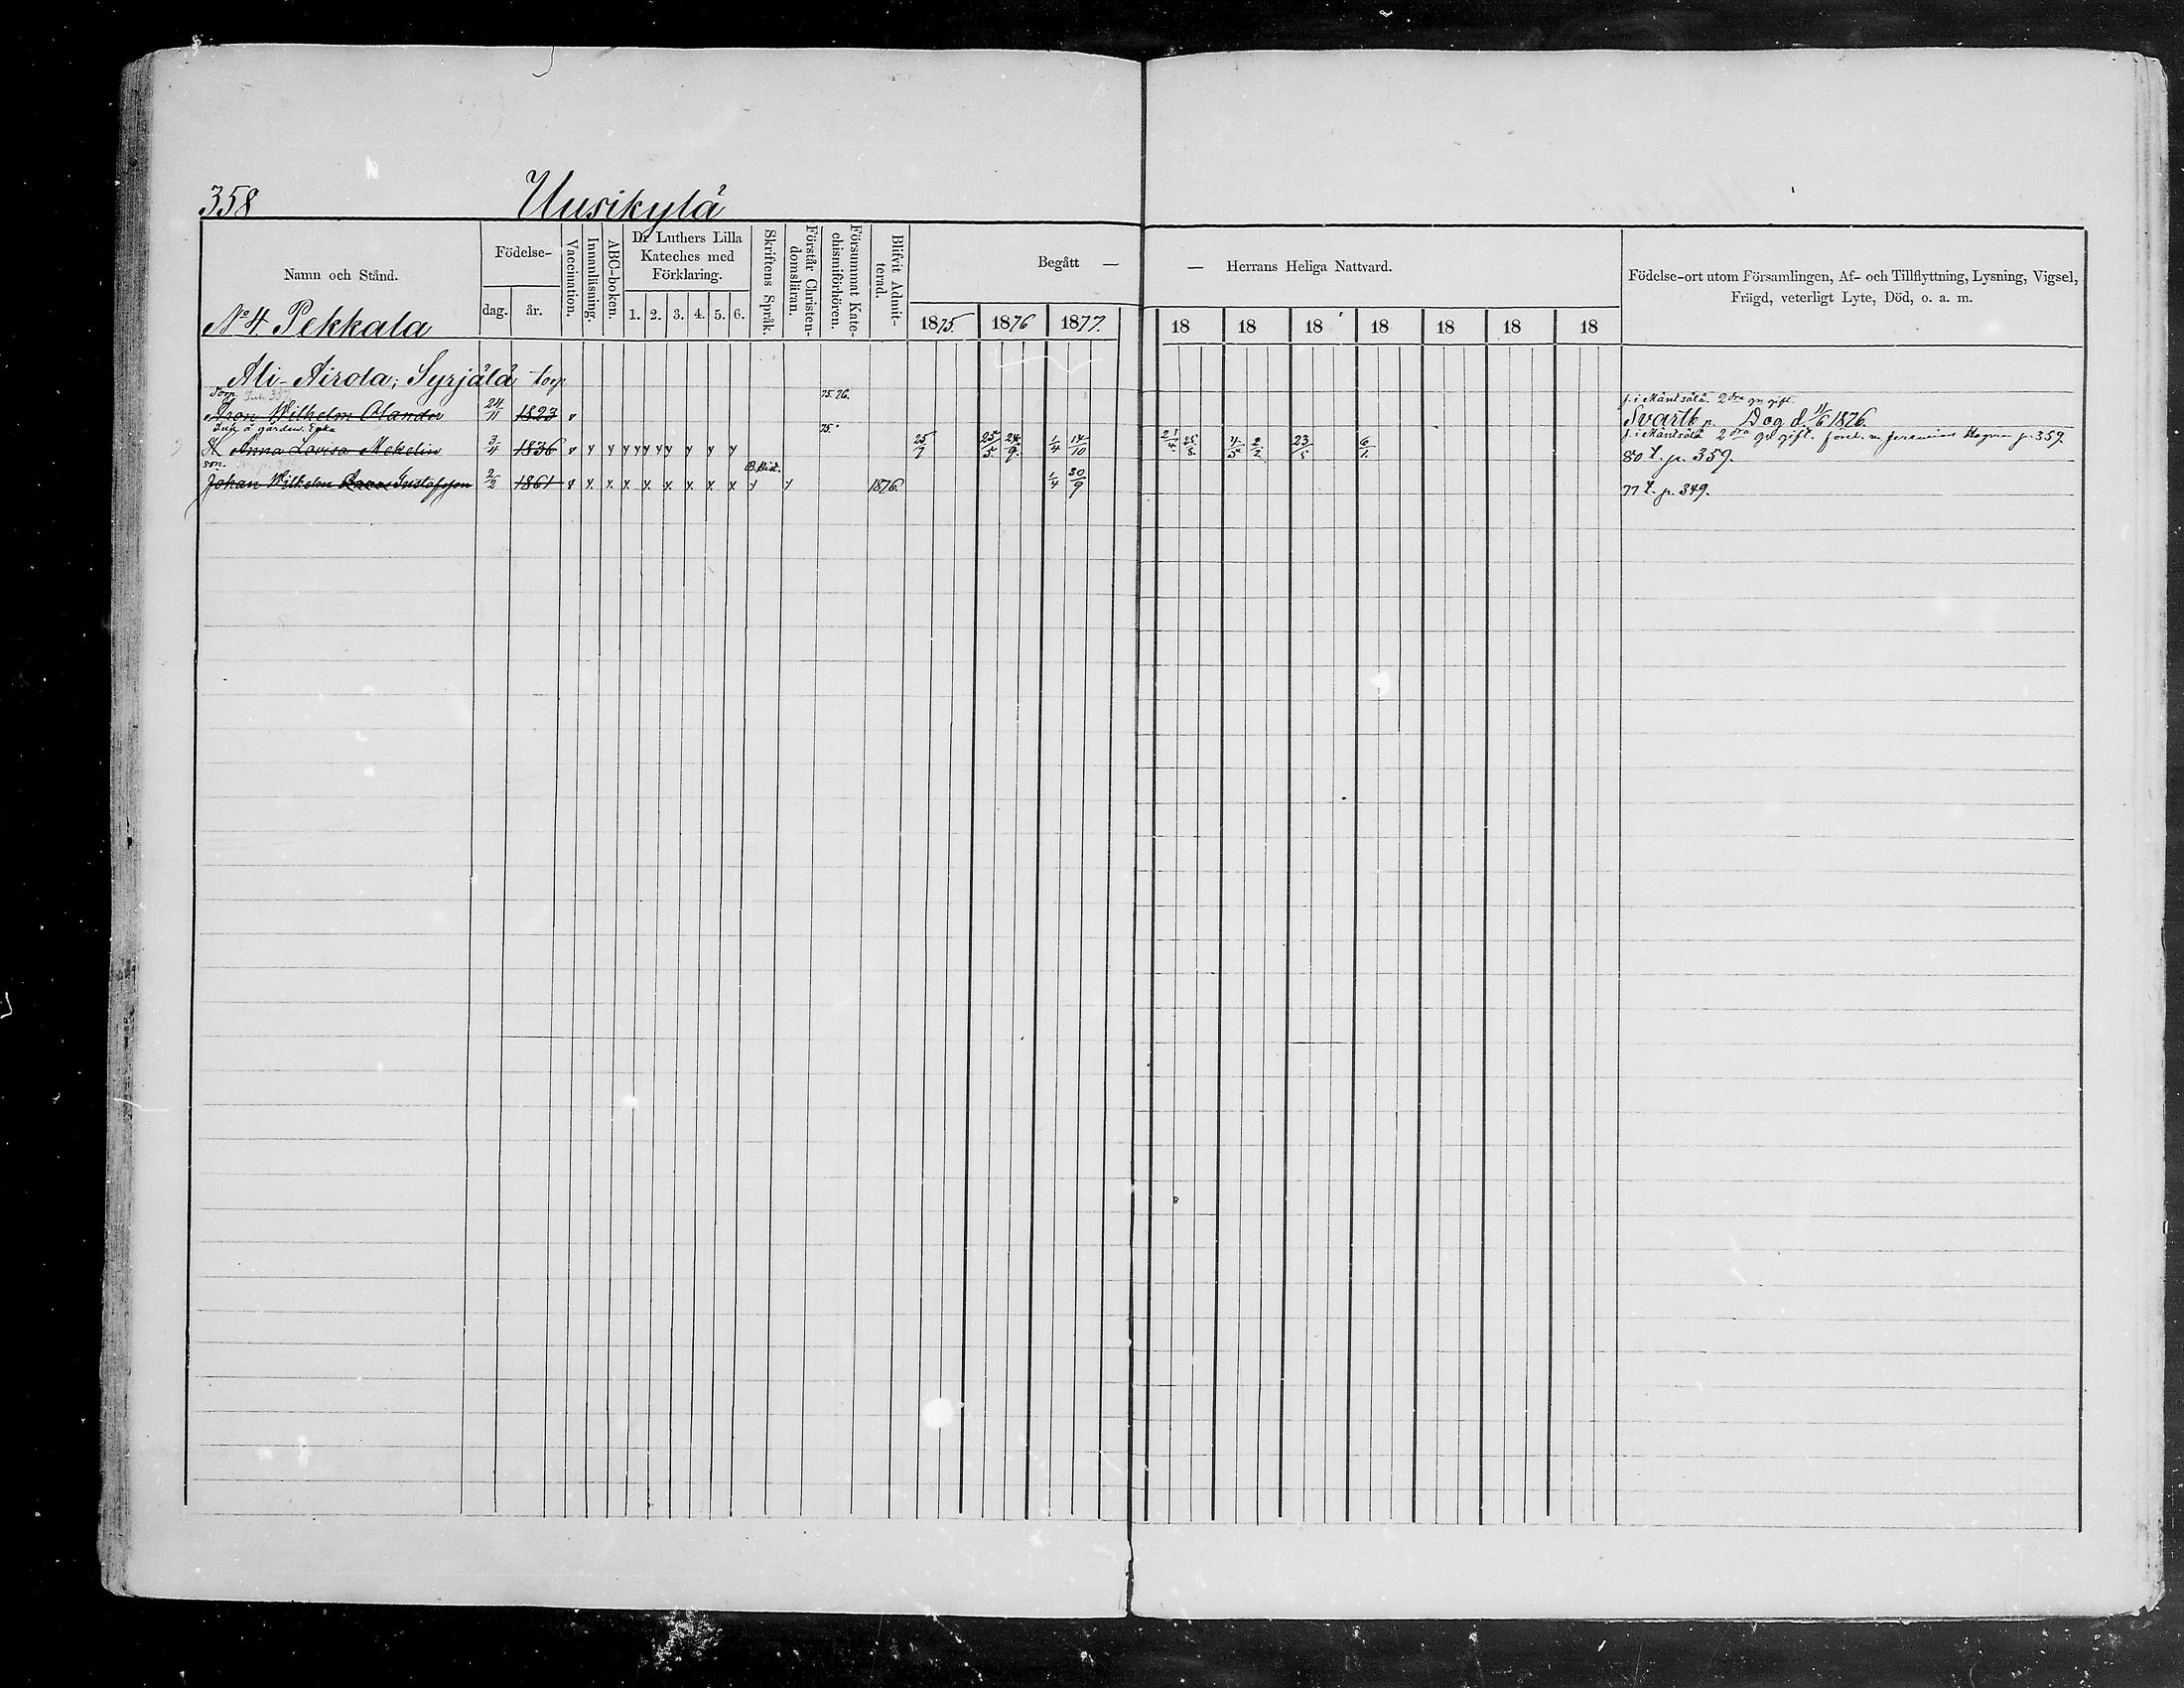 358 Uusikylä
Namn och Stånd.
Födelse-
dag. år.
Vaccination.
Innanläsning.
ABC-boken.
Dr Luthers Lilla Kateches med Förklaring.
1. 2. 3. 4. 5. 6.
Skriftens Språk.
Förstår Christen-domsläran.
Försummat Kate-chismiförhören.
Blifvit Admit-terad.
Begått —
1875. 1876 1877.
— Herrans Heliga Nattvard.
18 18 18 18 18 18 18
Födelse-ort utom Församlingen, Af- och Tillflyttning, Lysning, Vigsel,
Frägd, veterligt Lyte, Död, o. a. m.
No 4. Pekkala
Ali-Airola; Syrjälä torp
Torp. 75. 76. f. i Mäntsälä. 2dra gn gift.
Wilhelm Olander 24/11 1823 v Svartb p. Dog d. 11/6 1876.
Inh. å gården. Enka 75. f. i Mäntsälä 2dra gn gift. p. 359.
H Anna Lovisa Mekelin 3/4 1836 v y y y y y y y y y 25/7 25/5 24/9 1/4 14/10 4/5 2/2 23/5 6/1 80 t. p. 359.
son. B. Hist.
Johan Wilhelm Gustafsson 2/2 1861 v x x x x x x x x y y 1876. 1/4 30/9 77 t. p. 349.